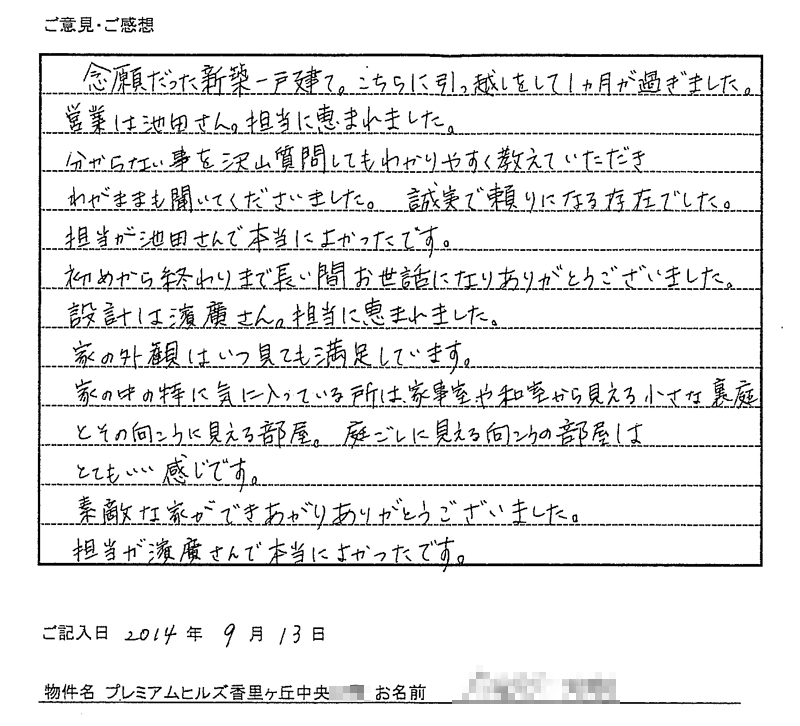 ご意見・ご感想
念願だった新築一戸建て。こちらに引っ越しをして1ヵ月が過ぎました。
営業は池田さん。担当に恵まれました。
分からない事を沢山質問してもわかりやすく教えていただき
わがままも聞いてくださいました。 誠実で頼りになる存在でした。
担当が池田さんで本当によかったです。
初めから終わりまで長い間お世話になりありがとうございました。
設計は濱廣さん。担当に恵まれました。
家の外観はいつ見ても満足しています。
家の中の特に気に入っている所は、家事室や和室から見える小さな裏庭
とその向こうに見える部屋。庭ごしに見える向こうの部屋は
とてもいい感じです。
素敵な家ができあがりありがとうございました。
担当が濱廣さんで本当によかったです。
ご記入日 2014 年 9 月 13 日
物件名 プレミアムヒルズ香里ヶ丘中央 お名前